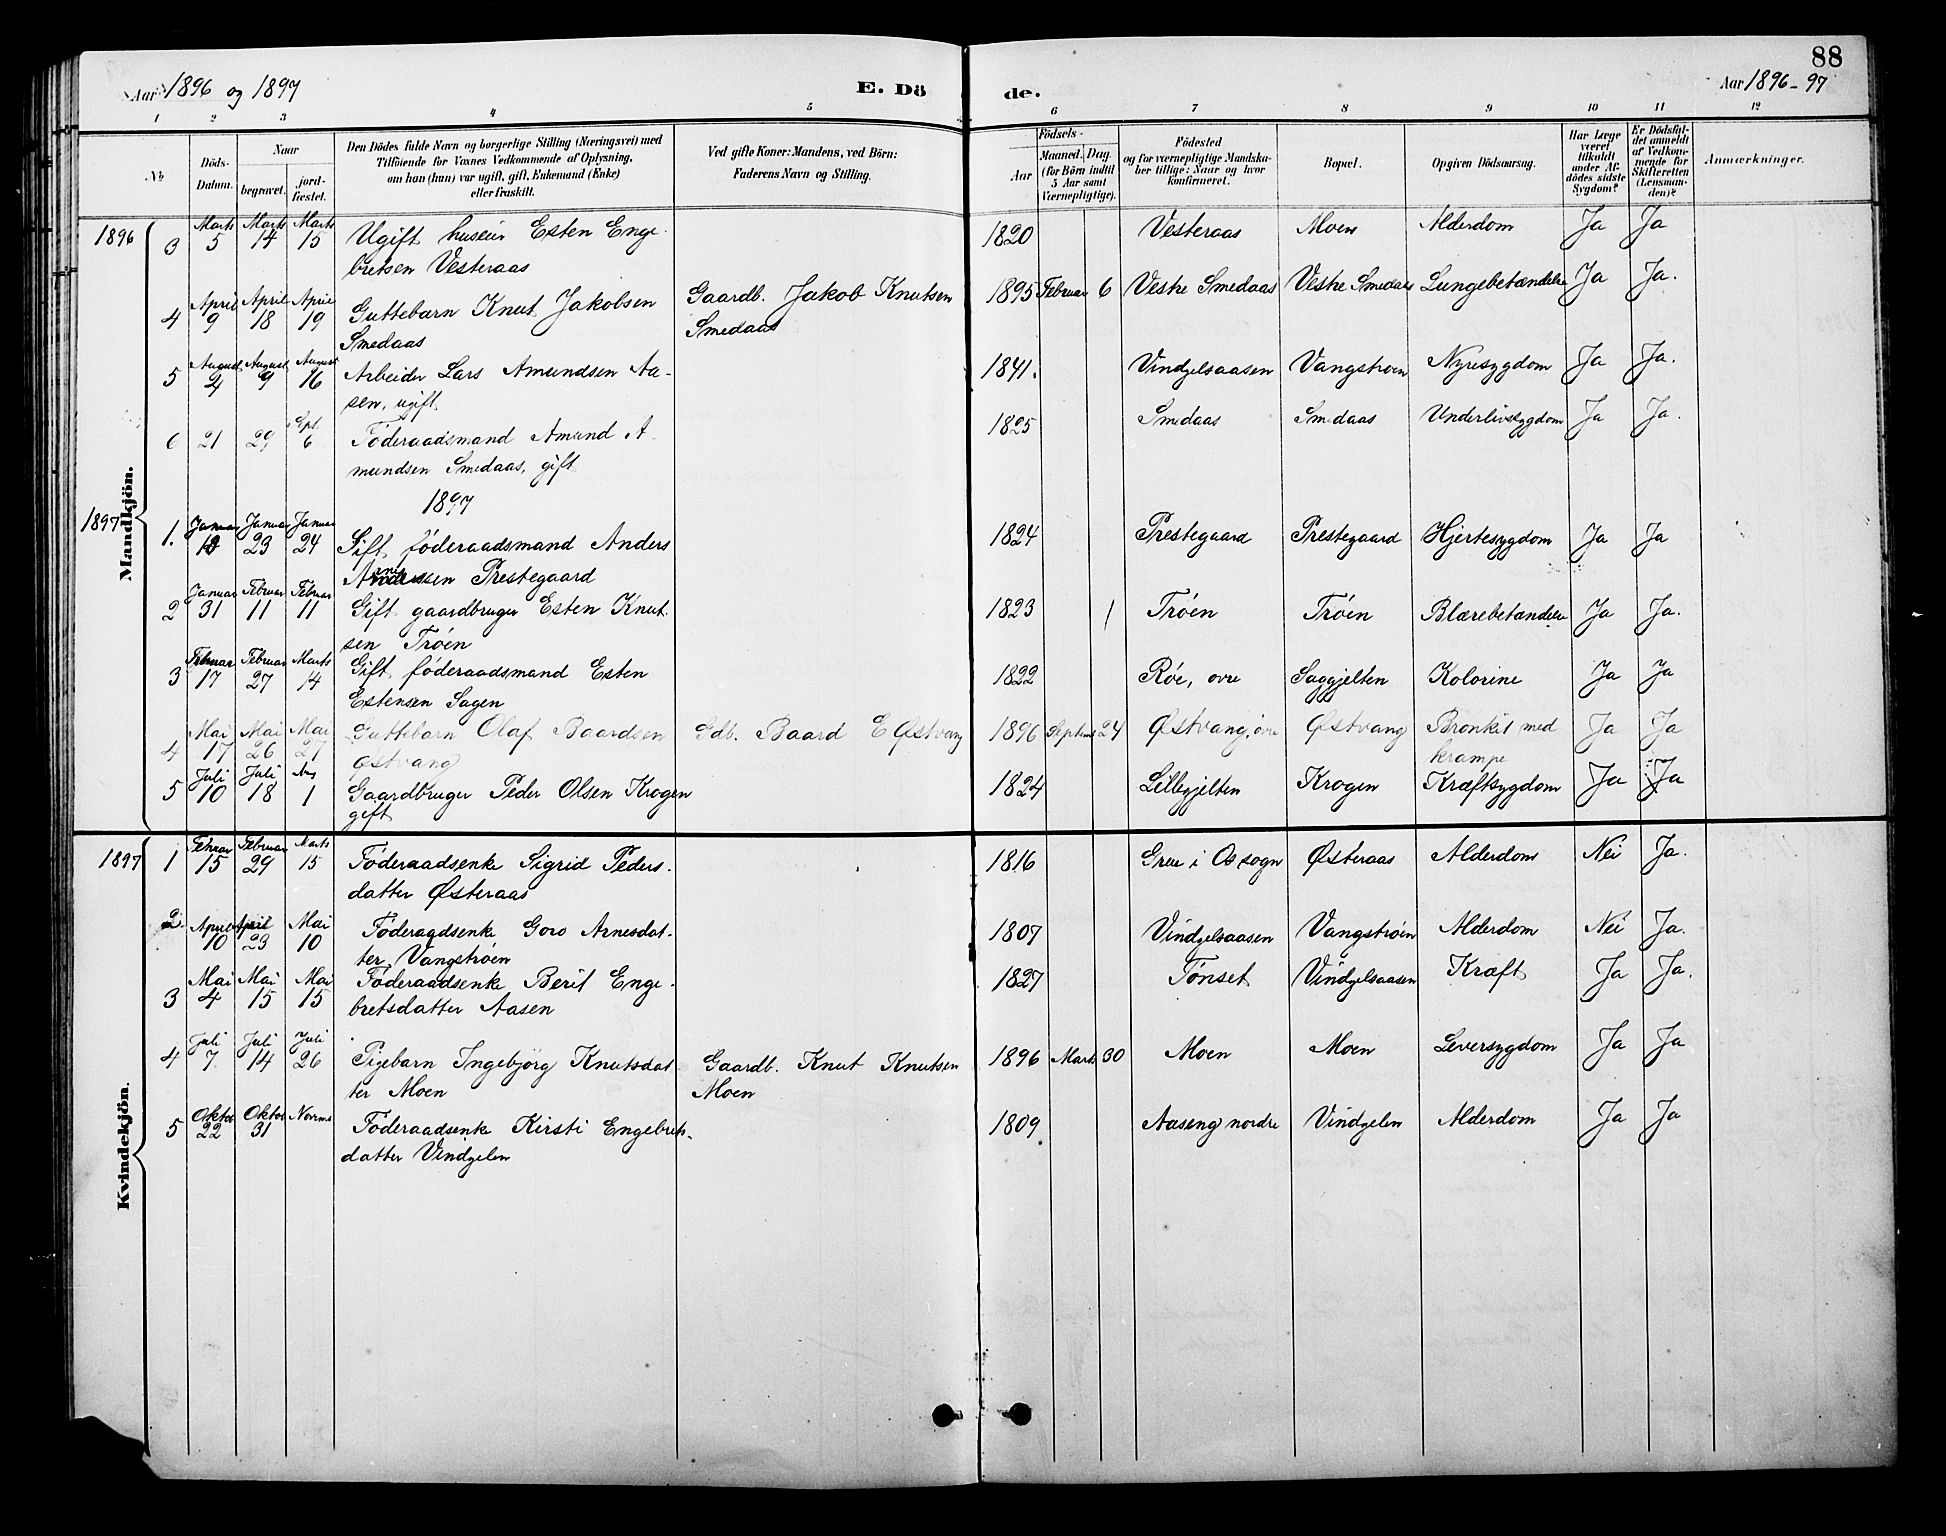 Aar 1896 og 1897 E. Dö
1 2 3 4 5
№ Döds-Datum. Naar begravet. jord-fæstet. Den Dödes fulde Navn og borgerlige Stilling (Næringsvei) med Tilföiende for Voxnes Vedkommende af Oplysning, om han (hun) var ugift, gift, Enkemand (Enke) eller fraskilt. Ved gifte Koner: Mandens, ved Börn: Faderens Navn og Stilling.
88
de. Aar 1896-97
6 7 8 9 10 11 12
Födsels- Aar Maaned. Dag. (for Börn indtil 5 Aar samt Værnepligtige). Födested og for værnepligtige Mandskaber tillige: Naar og hvor konfirmeret. Bopæl. Opgiven Dödsaarsag. Har Læge været tilkaldt under Afdödes sidste Sygdom? Er Dödsfaldet anmeldt af Vedkommende for Skifteretten (Lensmanden)? Anmærkninger.
Mandkjön.
1896 3 Marts 5 Marts 14 Marts 15 Ugift huseier Esten Enge- 1820 Vesteraas Moen Alderdom Ja Ja
bretsen Vesteraas
4 April 9 April 18 April 19 Guttebarn Knut Jakobsen Gaardb. Jakob Knutsen 1895 Februar 6 Vestre Smedaas Vestre Smedaas Lungebetændelse Ja Ja.
Smedaas Smedaas
5 August 4 August 9 August 16 Arbeider Lars Amundsen Aa- 1841. Vindgelsaasen Vangstrøen Nyresygdom Ja Ja.
sen, ugift
6 21 29 Sept 6 Føderaadsmand Amund A- 1825 Smedaas Smedaas Underlivssygdom Ja Ja.
mundsen Smedaas, gift
1897
1897 1. Januar 10 Januar 23 Januar 24 Gift føderaadsmand Anders 1824 Prestegaard Prestegaard Hjertesygdom Ja Ja
Arnessen Prestegaard
2 Januar 31 Februar 11 Februar 11 Gift gaardbruger Esten Knut- 1823 1 Trøen Trøen Blærebetændelse Ja Ja.
sen Trøen
3 Februar 17 Februar 27 Marts 14 Gift føderaadsmand Esten 1822 Røe, øvre Saggjelten Kolorine Ja Ja
Estensen Sagen
4 Mai 17 Mai 26 Mai 27 Guttebarn Olaf Baardsen Gdb. Baard E Østvang 1896 Septem 24 Østvang, øvre Østvang Bronkit med Ja Ja
Østvang krampe
5 Juli 10 Juli 18 Aug 1 Gaardbruger Peder Olsen Krogen 1824 Lillegjelten Krogen Kræftsygdom Ja Ja
gift
Kvindekjön.
1897 1 Februar 15 Februar 29 Marts 15 Føderaadsenke Sigrid Peders- 1816 Grue i Os sogn Østeraas Alderdom Nei Ja.
datter Østeraas
2 April 10 April 23 Mai 10 Føderaadsenke Goro Arnesdat- 1807 Vindgelsaasen Vangstrøen Alderdom Nei Ja.
ter Vangstrøen
3 Mai 4 Mai 15 Mai 15 Føderaadsenke Berit Enge- 1827 Tønset Vindgelsaasen Kræft Ja Ja.
bretsdatter Aasen
4 Juli 7 Juli 14 Juli 26 Pigebarn Ingebjörg Knutsdat- Gaardb. Knut Knutsen 1896 Marts 30 Moen Moen Leversygdom Ja Ja
ter Moen Moen
5 Oktob 22 Oktob 31 Føderaadsenke Kirsti Engebrets- 1809 Aaseng nordre Vindgelen Alderdom Ja Ja
datter Vindgelen